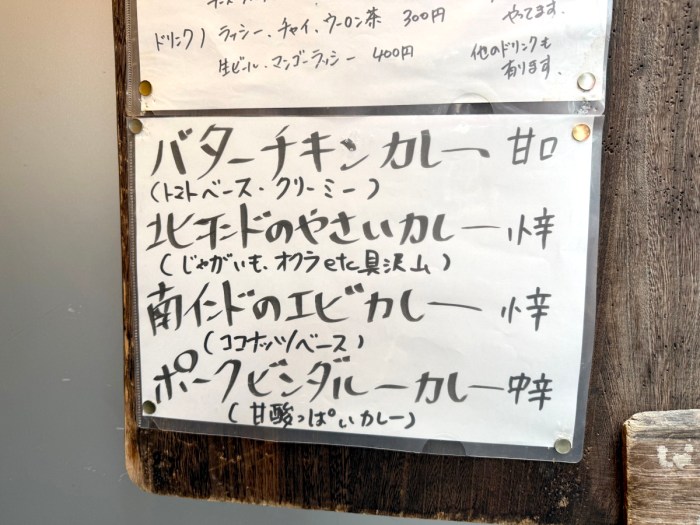 やってます。
ドリンク) ラッシー、チャイ、ウーロン茶 300円
生ビール、マンゴーラッシー 400円
他のドリンクも
有ります。
バターチキンカレー 甘口
(トマトベース・クリーミー)
北インドのやさいカレー 小辛
(じゃがいも、オクラetc具沢山)
南インドのエビカレー 小辛
(ココナッツベース)
ポークビンダルーカレー 中辛
(甘酸っぱいカレー)